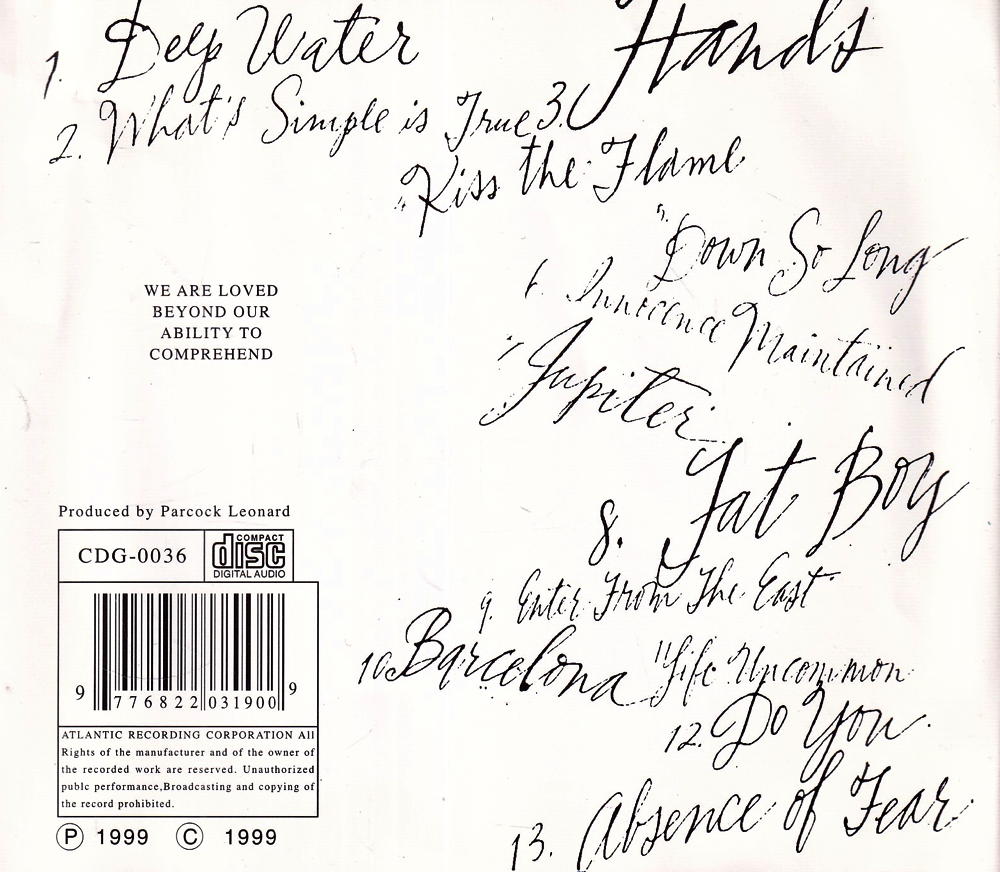 1. Deep Water
2. What's Simple is True
3. Hands
4. Kiss the Flame
5. Down So Long
6. Innocence Maintained
7. Jupiter
8. Fat Boy
9. Enter From The East
10. Barcelona
11 Life Uncommon
12. Do You
13. Absence of Fear
WE ARE LOVED
BEYOND OUR
ABILITY TO
COMPREHEND
Produced by Parcock Leonard
CDG-0036
COMPACT
disc
DIGITAL AUDIO
9 776822 031900 9
ATLANTIC RECORDING CORPORATION All
Rights of the manufacturer and of the owner of
the recorded work are reserved. Unauthorized
publc performance,Broadcasting and copying of
the record prohibited.
Ⓟ 1999 Ⓒ 1999